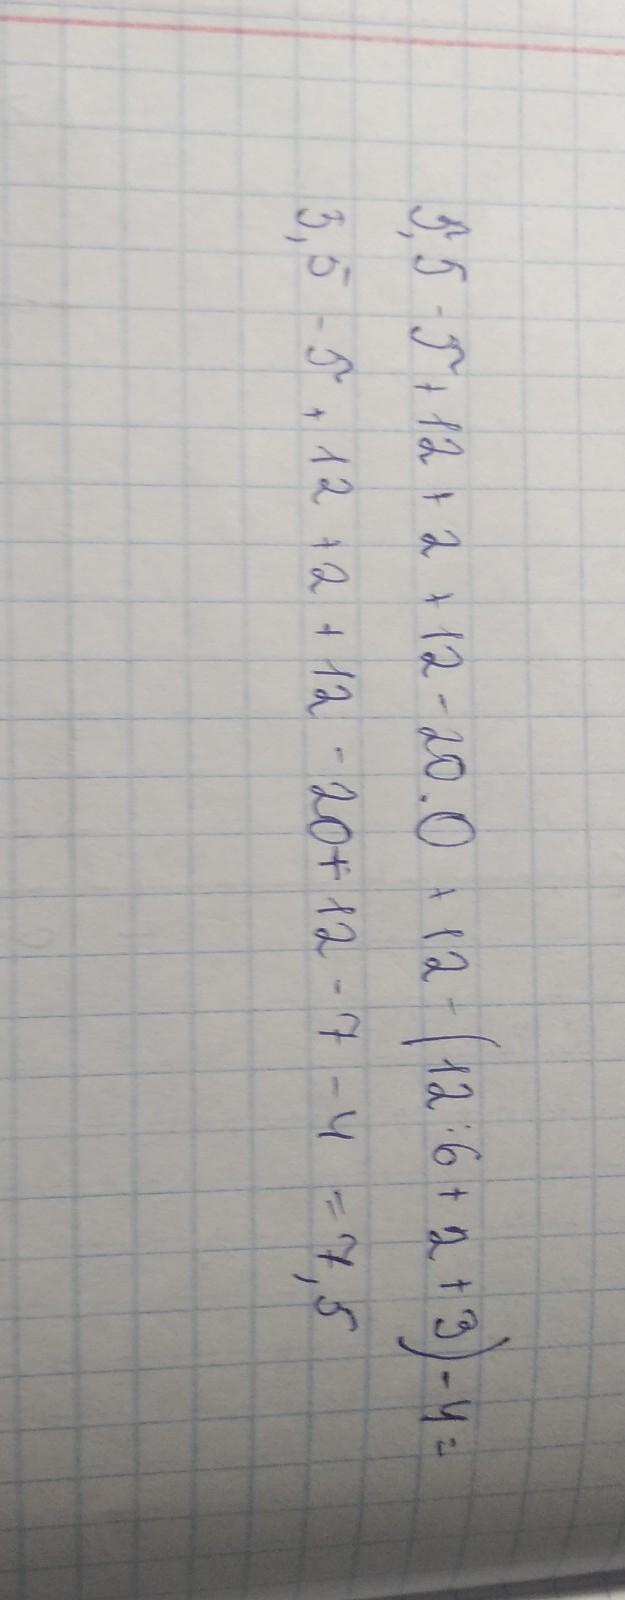 5,5 - 5 + 12 + 2 + 12 - 20.0 + 12 - (12:6 + 2 + 3) - 4 =
3,5 - 5 + 12 + 2 + 12 - 20 + 12 - 7 - 4 = 7,5